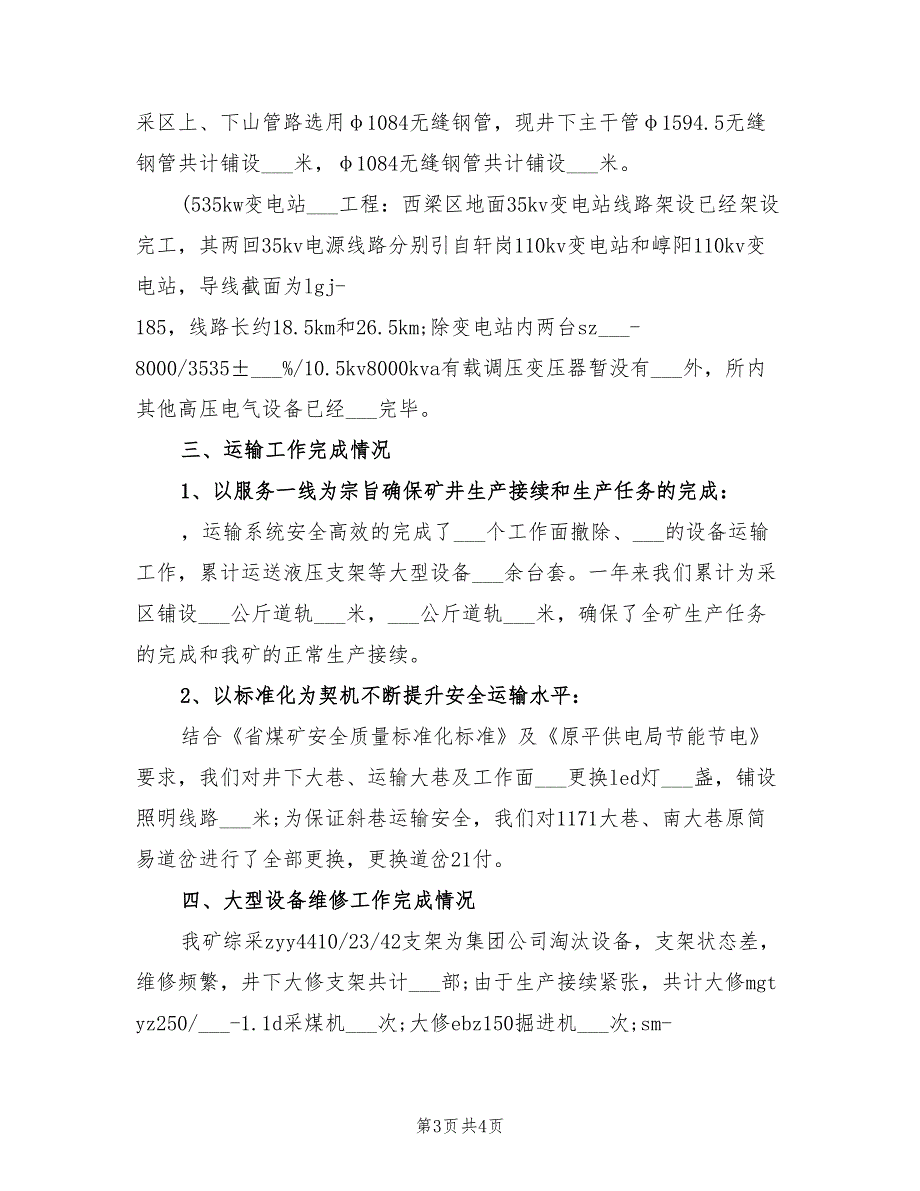 采区上、下山管路选用φ1084无缝钢管，现井下主干管φ1594.5无缝
钢管共计铺设___米，φ1084无缝钢管共计铺设___米。
(535kw变电站___工程：西梁区地面35kv变电站线路架设已经架设
完工，其两回35kv电源线路分别引自轩岗110kv变电站和崞阳110kv变
电站，导线截面为lgj-
185，线路长约18.5km和26.5km;除变电站内两台sz___-
8000/3535±___%/10.5kv8000kva有载调压变压器暂没有___外，所内
其他高压电气设备已经___完毕。
三、运输工作完成情况
1、以服务一线为宗旨确保矿井生产接续和生产任务的完成：
，运输系统安全高效的完成了___个工作面撤除、___的设备运输
工作，累计运送液压支架等大型设备___余台套。一年来我们累计为采
区铺设___公斤道轨___米，___公斤道轨___米，确保了全矿生产任务
的完成和我矿的正常生产接续。
2、以标准化为契机不断提升安全运输水平：
结合《省煤矿安全质量标准化标准》及《原平供电局节能节电》
要求，我们对井下大巷、运输大巷及工作面___更换led灯___盏，铺设
照明线路___米;为保证斜巷运输安全，我们对1171大巷、南大巷原简
易道岔进行了全部更换，更换道岔21付。
四、大型设备维修工作完成情况
我矿综采zyy4410/23/42支架为集团公司淘汰设备，支架状态差，
维修频繁，井下大修支架共计___部;由于生产接续紧张，共计大修mgt
yz250/___-1.1d采煤机___次;大修ebz150掘进机___次;sm-
第3页共4页